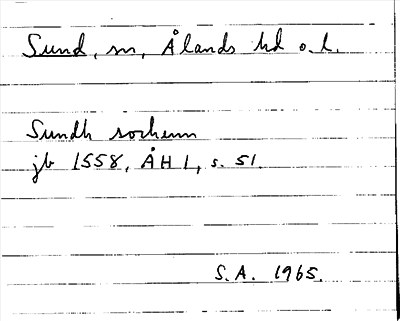 Sund, sn, Ålands hd o.l.
Sundh sochenn
jb 1558, ÅH I, s. 51.
S.A. 1965.